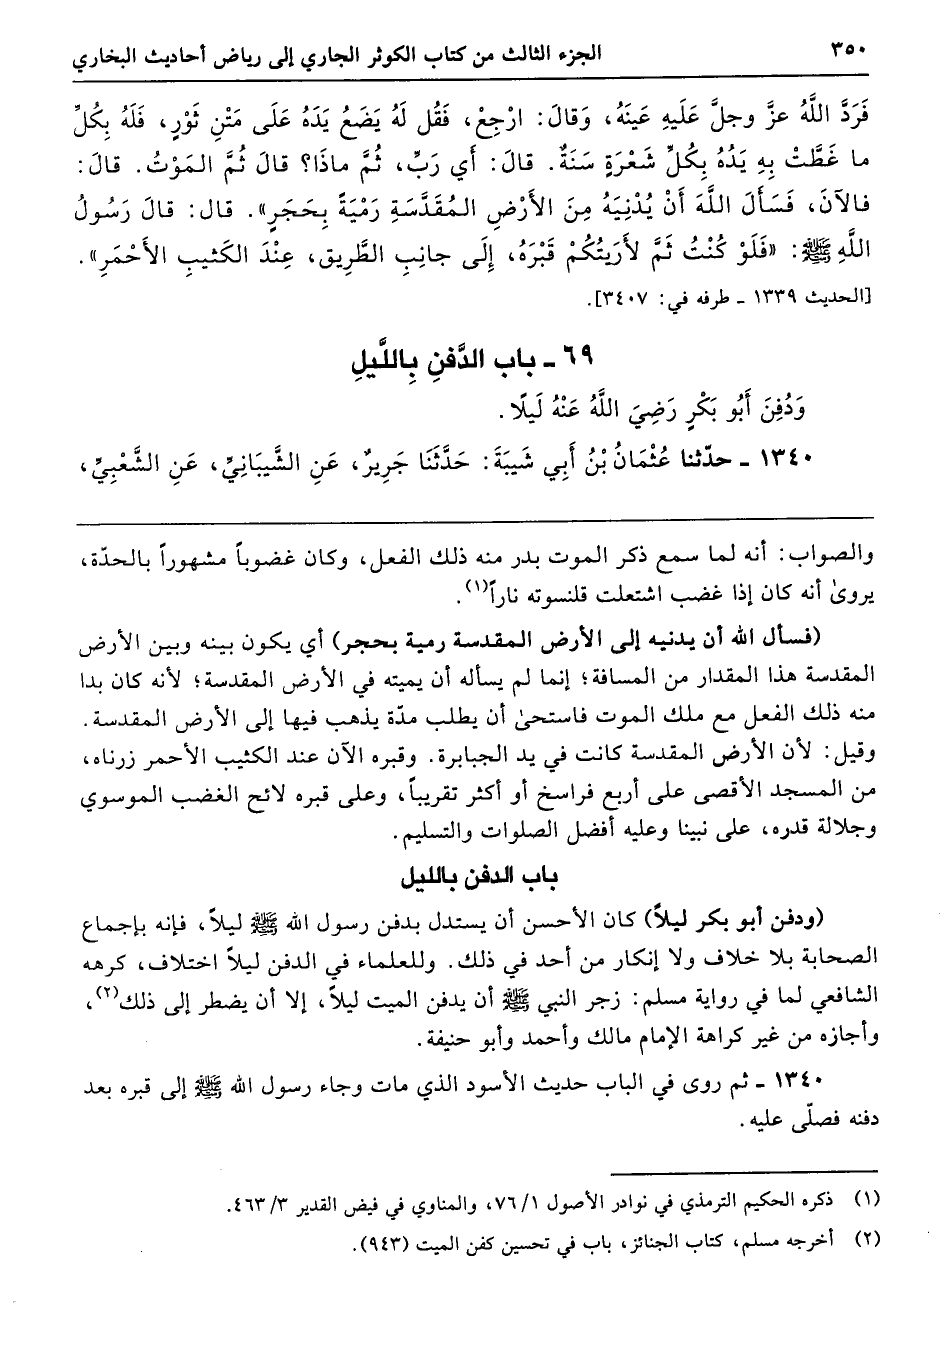 ٣٥٠ الجزء الثالث من كتاب الكوثر الجاري إلى رياض أحاديث البخاري
فَرَدَّ اللَّهُ عزَّ وجلَّ عَلَيهِ عَينَهُ، وَقالَ: ارْجِعْ، فَقُل لَهُ يَضَعُ يَدَهُ عَلَى مَتْنِ ثَوْرٍ، فَلَهُ بِكُلِّ
ما غَطَّتْ بِهِ يَدُهُ بِكُلِّ شَعْرَةٍ سَنَةٌ. قالَ: أَي رَبِّ، ثُمَّ ماذَا؟ قالَ ثُمَّ المَوْتُ. قالَ:
فالآنَ، فَسَأَلَ اللَّهَ أَنْ يُدْنِيَهُ مِنَ الأَرْضِ المُقَدَّسَةِ رَمْيَةً بِحَجَرٍ». قال: قالَ رَسُولُ
اللَّهِ ﷺ: «فَلَوْ كُنْتُ ثَمَّ لأَرَيتُكُمْ قَبْرَهُ، إِلَى جانِبِ الطَّرِيقِ، عِنْدَ الكَثيبِ الأَحْمَرِ».
[الحديث ١٣٣٩ ـ طرفه في: ٣٤٠٧].
٦٩ ـ باب الدَّفنِ بِاللَّيلِ
وَدُفِنَ أَبُو بَكْرٍ رَضِيَ اللَّهُ عَنْهُ لَيلًا.
١٣٤٠ ـ حدّثنا عُثْمَانُ بْنُ أَبِي شَيبَةَ: حَدَّثَنَا جَرِيرٌ، عَنِ الشَّيبَانِيِّ، عَنِ الشَّعْبِيِّ،
والصواب: أنه لما سمع ذكر الموت بدر منه ذلك الفعل، وكان غضوباً مشهوراً بالحدّة،
يروىٰ أنه كان إذا غضب اشتعلت قلنسوته ناراً(١).
(فسأل الله أن يدنيه إلى الأرض المقدسة رمية بحجر) أي يكون بينه وبين الأرض
المقدسة هذا المقدار من المسافة؛ إنما لم يسأله أن يميته في الأرض المقدسة؛ لأنه كان بدا
منه ذلك الفعل مع ملك الموت فاستحىٰ أن يطلب مدّة يذهب فيها إلى الأرض المقدسة.
وقيل: لأن الأرض المقدسة كانت في يد الجبابرة. وقبره الآن عند الكثيب الأحمر زرناه،
من المسجد الأقصى على أربع فراسخ أو أكثر تقريباً، وعلى قبره لائح الغضب الموسوي
وجلالة قدره، على نبينا وعليه أفضل الصلوات والتسليم.
باب الدفن بالليل
(ودفن أبو بكر ليلاً) كان الأحسن أن يستدل بدفن رسول الله ﷺ ليلاً، فإنه بإجماع
الصحابة بلا خلاف ولا إنكار من أحد في ذلك. وللعلماء في الدفن ليلاً اختلاف، كرهه
الشافعي لما في رواية مسلم: زجر النبي ﷺ أن يدفن الميت ليلاً، إلا أن يضطر إلى ذلك(٢)،
وأجازه من غير كراهة الإمام مالك وأحمد وأبو حنيفة.
١٣٤٠ ـ ثم روى في الباب حديث الأسود الذي مات وجاء رسول الله ﷺ إلى قبره بعد
دفنه فصلّى عليه.
(١) ذكره الحكيم الترمذي في نوادر الأصول ٧٦/١، والمناوي في فيض القدير ٤٦٣/٣.
(٢) أخرجه مسلم، كتاب الجنائز، باب في تحسين كفن الميت (٩٤٣).